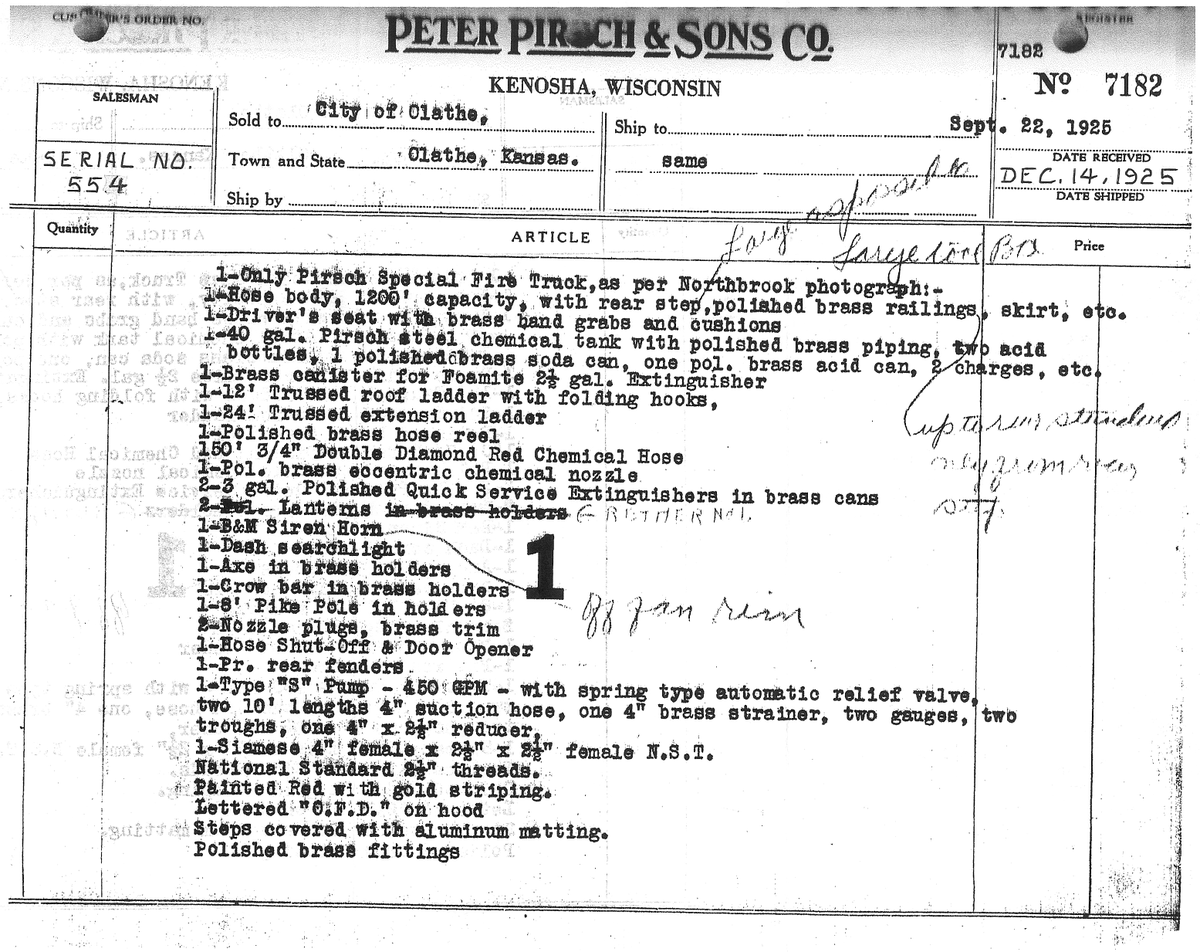 CUSTOMER'S ORDER NO.
PETER PIRSCH & SONS CO.
REGISTER
7182
KENOSHA, WISCONSIN
Nº 7182
SALESMAN
SERIAL NO.
554
Sold to City of Olathe,
Town and State Olathe, Kansas.
Ship by
Ship to
same
Sept. 22, 1925
DATE RECEIVED
DEC. 14, 1925
DATE SHIPPED
Large as possible
Large tool Box
Quantity
ARTICLE
Price
1-Only Pirsch Special Fire Truck,as per Northbrook photograph:-
1-Hose body, 1200' capacity, with rear step,polished brass railings, skirt, etc.
1-Driver's seat with brass hand grabs and cushions
1-40 gal. Pirsch steel chemical tank with polished brass piping, two acid
bottles, 1 polished brass soda can, one pol. brass acid can, 2 charges, etc.
1-Brass canister for Foamite 2½ gal. Extinguisher
1-12' Trussed roof ladder with folding hooks,
1-24' Trussed extension ladder
1-Polished brass hose reel
150' 3/4" Double Diamond Red Chemical Hose
1-Pol. brass eccentric chemical nozzle
2-3 gal. Polished Quick Service Extinguishers in brass cans
2-Pol. Lanterns in brass holders
1-B&M Siren Horn
1-Dash searchlight
1-Axe in brass holders
1-Crow bar in brass holders
1-8' Pike Pole in holders
2-Nozzle plugs, brass trim
1-Hose Shut-Off & Door Opener
1-Pr. rear fenders
1-Type "S" Pump - 450 GPM - with spring type automatic relief valve,
two 10' lengths 4" suction hose, one 4" brass strainer, two gauges, two
troughs, one 4" x 2½" reducer,
1-Siamese 4" female x 2½" x 2½" female N.S.T.
National Standard 2½" threads.
Painted Red with gold striping.
Lettered "O.F.D." on hood
Steps covered with aluminum matting.
Polished brass fittings
1
off fan
up to
standard
only